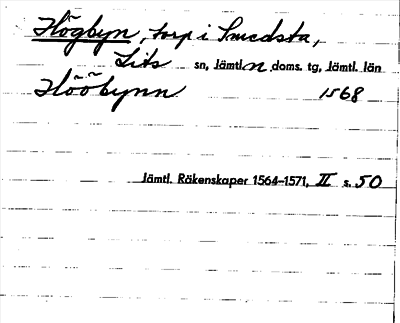 Högbyn, torp i Smedsta,
Lits sn, Jämtl. n doms. tg, Jämtl. län
Höõbynn 1568
Jämtl. Räkenskaper 1564-1571, II s. 50